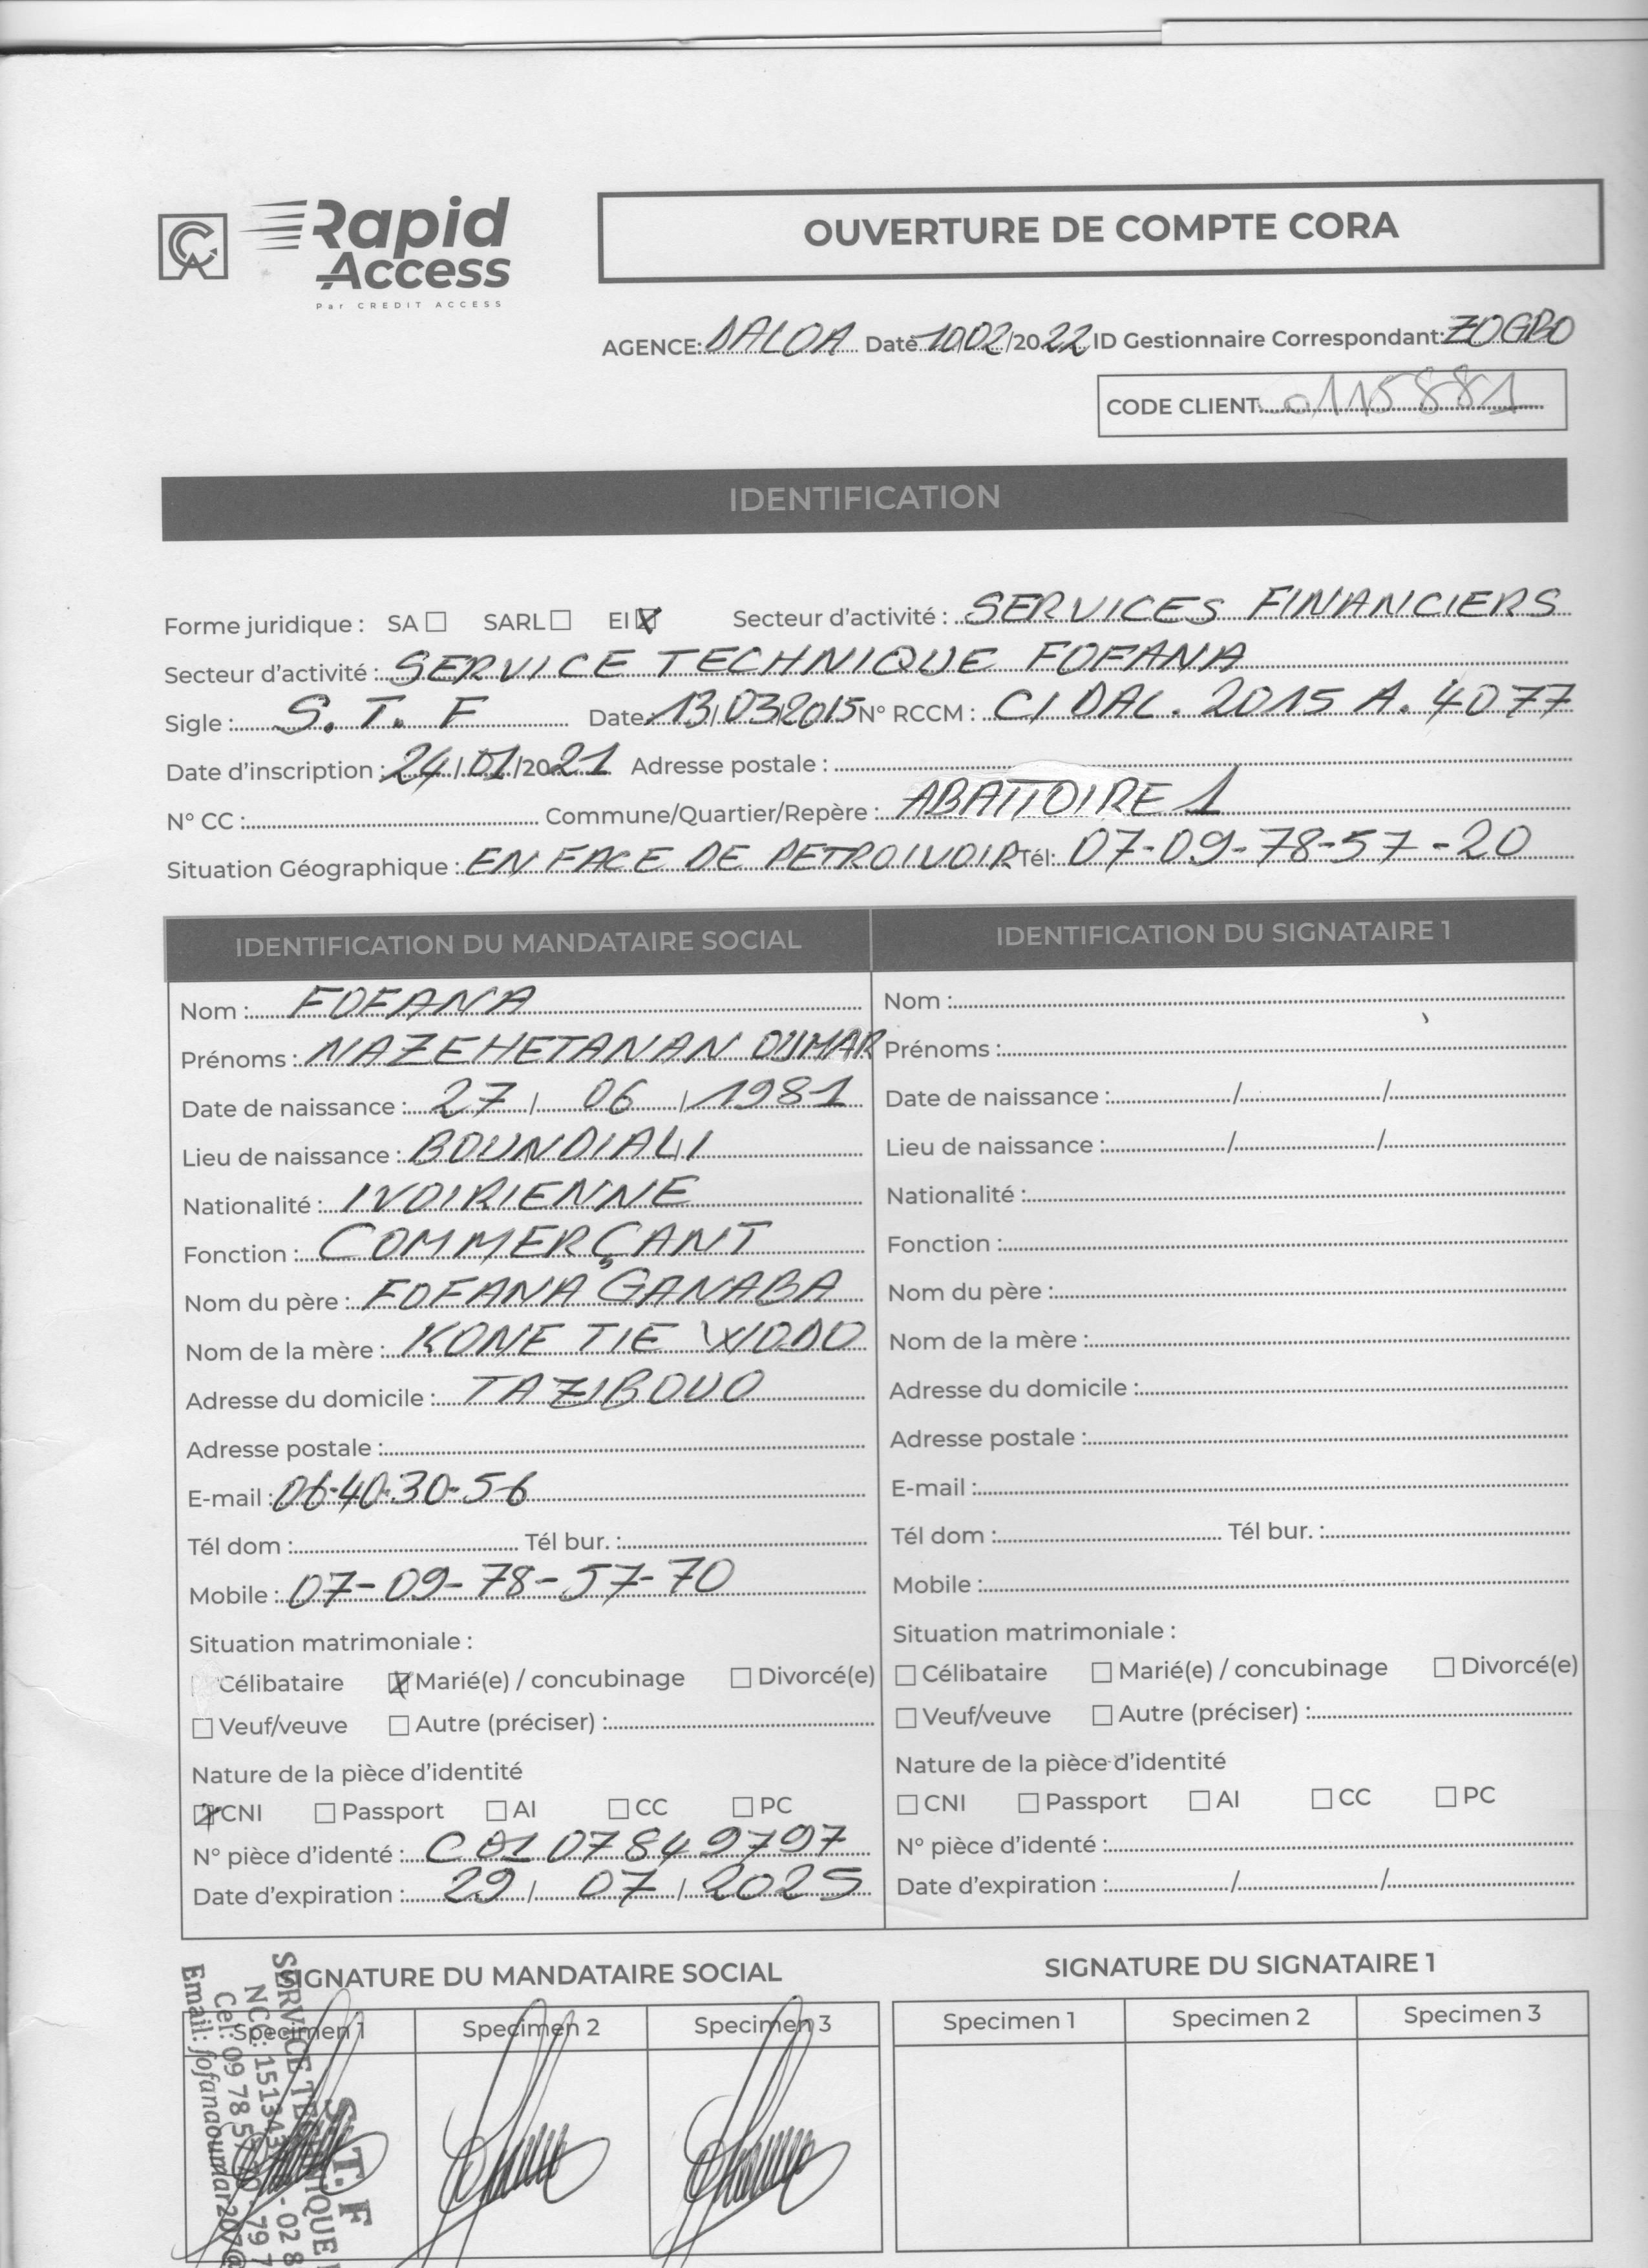 Rapid
Access
Par CREDIT ACCESS
OUVERTURE DE COMPTE CORA
AGENCE: DALOA Date 10/02/2022 ID Gestionnaire Correspondant: ZOGBO
CODE CLIENT 0115881
IDENTIFICATION
Forme juridique : SA SARL EI Secteur d'activité : SERVICES FINANCIERS
Secteur d'activité : SERVICE TECHNIQUE FOFANA
Sigle : S. T. F Date: 13/03/2015 N° RCCM : CI DAL. 2015 A. 4077
Date d'inscription : 24/01/2021 Adresse postale :
N° CC : Commune/Quartier/Repère : ABATTOIRE 1
Situation Géographique : EN FACE DE PETROIVOIR Tél: 07-09-78-57-20
IDENTIFICATION DU MANDATAIRE SOCIAL
Nom : FOFANA
Prénoms : NAZEHETANAN OUMAR
Date de naissance : 27 / 06 / 1981
Lieu de naissance : BOUNDIALI
Nationalité : IVOIRIENNE
Fonction : COMMERÇANT
Nom du père : FOFANA GANABA
Nom de la mère : KONE TIE
Adresse du domicile : TAZIBOUO
Adresse postale :
E-mail : 06-40-30-56
Tél dom : Tél bur. :
Mobile : 07-09-78-57-70
Situation matrimoniale :
Célibataire Marié(e) / concubinage Divorcé(e)
Veuf/veuve Autre (préciser) :
Nature de la pièce d'identité
CNI Passport AI CC PC
N° pièce d'identé : C 01 0784 9797
Date d'expiration : 29 / 07 / 2025
IDENTIFICATION DU SIGNATAIRE 1
Nom :
Prénoms :
Date de naissance : / /
Lieu de naissance : / /
Nationalité :
Fonction :
Nom du père :
Nom de la mère :
Adresse du domicile :
Adresse postale :
E-mail :
Tél dom : Tél bur. :
Mobile :
Situation matrimoniale :
Célibataire Marié(e) / concubinage Divorcé(e)
Veuf/veuve Autre (préciser) :
Nature de la pièce d'identité
CNI Passport AI CC PC
N° pièce d'identé :
Date d'expiration : / /
SIGNATURE DU MANDATAIRE SOCIAL
Specimen 1 Specimen 2 Specimen 3
SIGNATURE DU SIGNATAIRE 1
Specimen 1 Specimen 2 Specimen 3
S.T.F
SERVICE TECHNIQUE
NCC: 
Cel: 09 78 57
Email: fofanaoumar207@